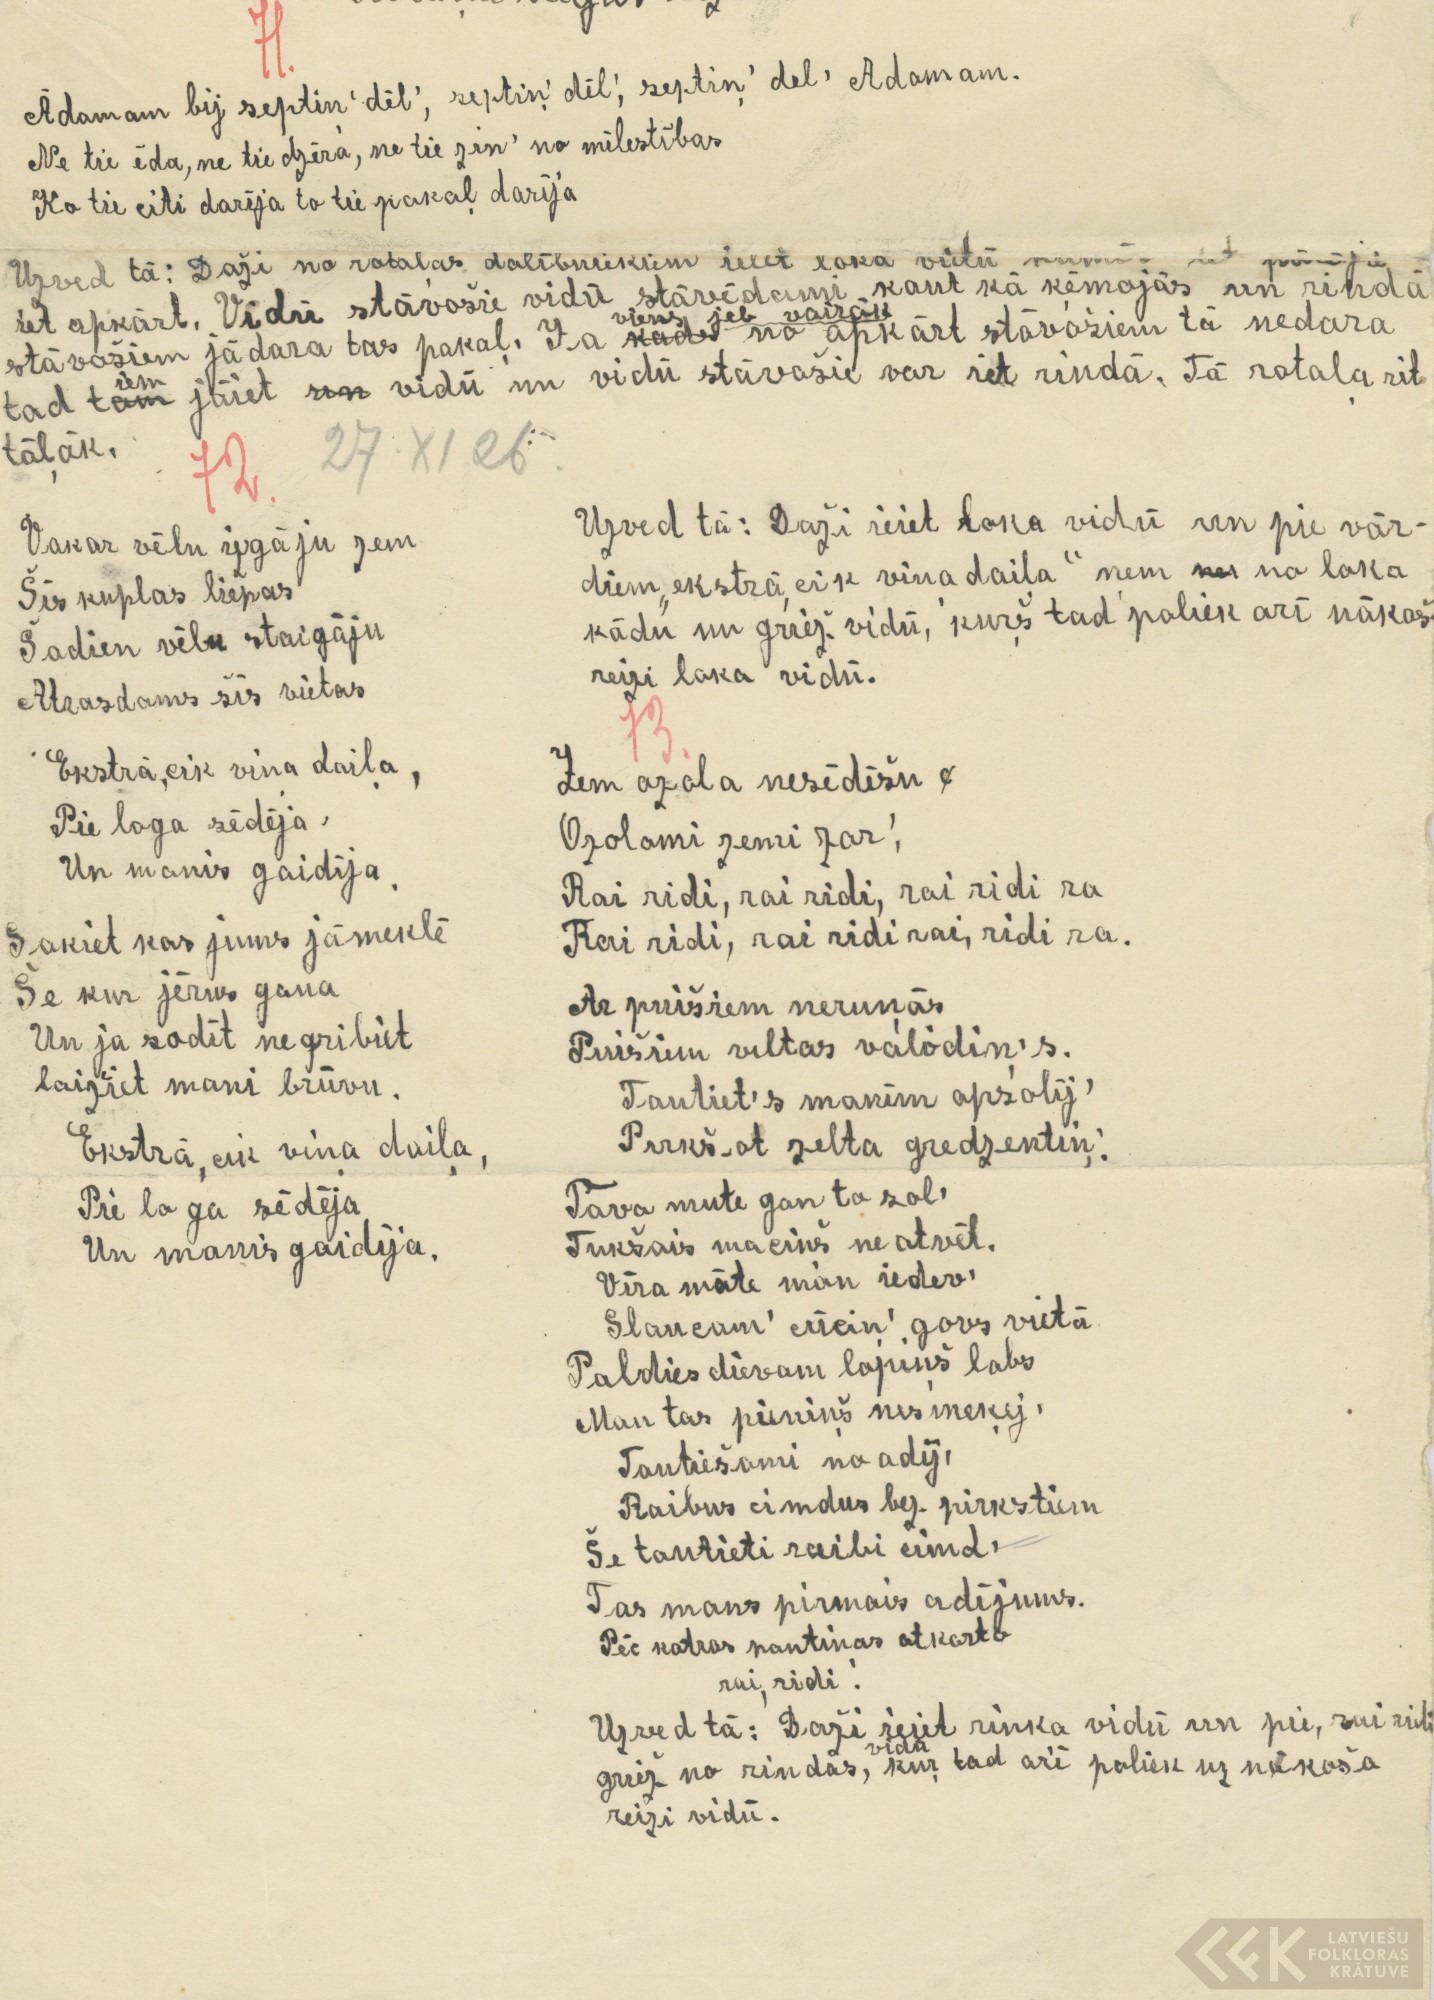 71.
Ādamam bij septiņ' dēl', septiņ' dēl', septiņ' del' Adamam.
Ne tie ēda, ne tie dzēra, ne tie zin' no mīlestības
Ko tie citi darīja to tie pakaļ darīja
Uzved tā: Daži no rotaļas dalībniekiem ieiet loka vidū
iet apkārt. Vidū stāvošie vidū stāvēdami kaut kā ķēmojās un rindā
stāvošiem jādara tas pakaļ. Ja kads viens jeb vairāk no apkārt stāvošiem tā nedara
tad tam iem jāiet un vidū un vidū stāvošie var iet rindā. Tā rotaļa rit
tāļāk.
72. 27 XI 26.
Vakar vēlu izgāju zem
Šīs kuplas liepas
Šodien vēlu staigāju
Atrasdams šīs vietas
Ekstrā, cik viņa daiļa,
Pie loga sēdēja,
Un manis gaidīja.
Sakiet kas jums jāmeklē
Še kur jērus gana
Un ja sodīt negribiet
laižiet mani brūvu.
Ekstrā, cik viņa daiļa,
Pie loga sēdēja
Un manis gaidīja.
Uzved tā: Daži ieiet loka vidū un pie vār-
diem „ekstrā, cik viņa daiļa" ņem no loka
kādu un griež vidū, kurš tad paliek arī nākoš
reizi loka vidū.
73.
Zem ozola nesēdēšu
Ozolami zemi zar',
Rai ridi, rai ridi, rai ridi ra
Rai ridi, rai ridi rai, ridi ra.
Ar puišiem nerunās
Puišiem veltas valodiņ's.
Tautiet's manim apsolīj'
Pirkš-ot zelta gredzentiņ'.
Tava mute gan to sol'
Tukšais maciņš ne atvēl.
Vīra māte man iedev'
Slaucam' cūciņ' govs vietā
Paldies dievam lopiņš labs
Man tas pieniņš nesmeķej'
Tautiešami no adīj'
Raibus cimdus bez pirkstiem
Še tautieti raibi cimd'
Tas mans pirmais adījums.
Pēc katras pantiņas atkarto
rai, ridi!
Uzved tā: Daži ieiet rinķa vidū un pie, rai ridi
griež no rindas, vidū kuŗ tad arī paliek uz nākoša
reizi vidū.
LATVIEŠU
FOLKLORAS
KRĀTUVE